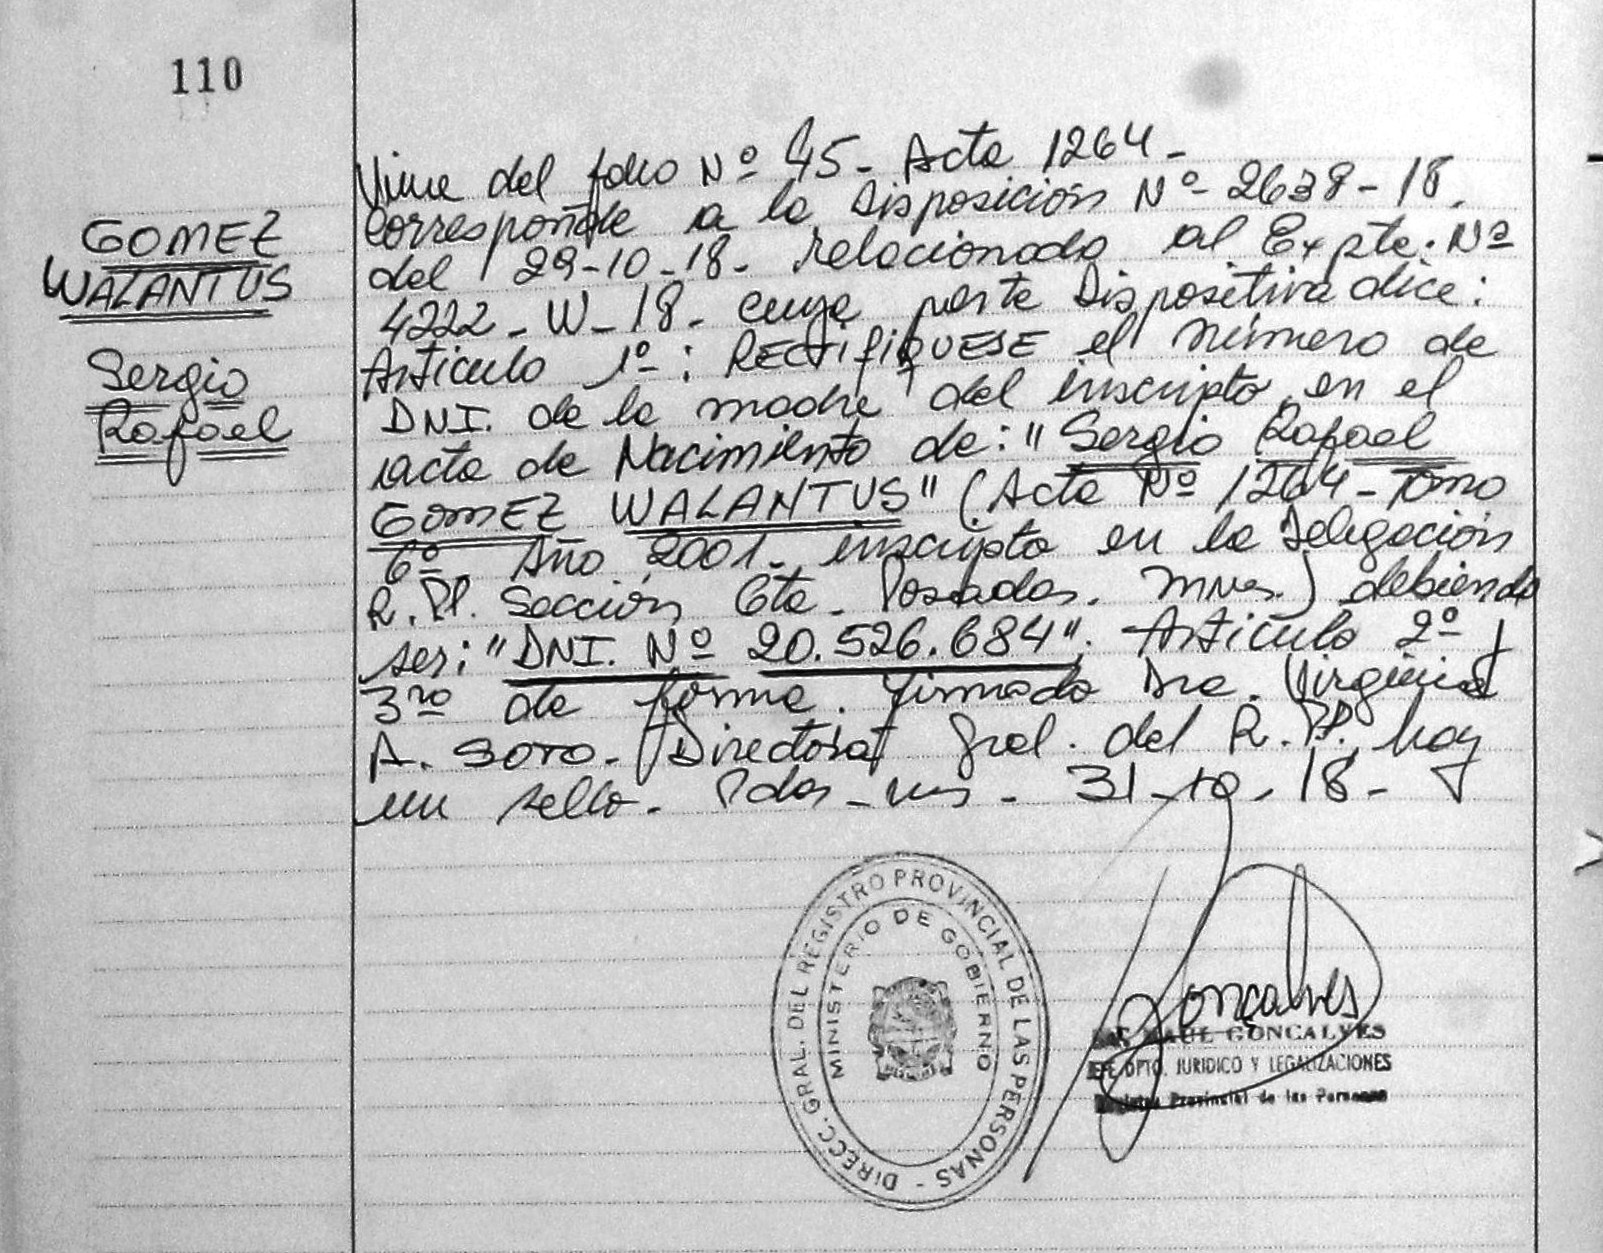 110
GOMEZ
WALANTUS
Sergio
Rafael
Viene del folio Nº 45- Acta 1264-
Corresponde a la Disposición Nº- 2638-18.
del 29-10-18- relacionada al Expte. Nº
4222-W-18- cuya parte Dispositiva dice:
Artículo 1º-: RECTIFIQUESE el número de
DNI. de la madre del inscripto en el
acta de Nacimiento de: "Sergio Rafael
GOMEZ WALANTUS" (Acta Nº 1264-Tomo
6º- Año 2001- inscripto en la Delegación
R.PP. Sección 6ta. Posadas. Mnes.) debiendo
ser: "DNI. Nº 20.526.684". Artículo 2º y
3ro de forma. Firmado Dra. Virginia
A. SOTO- Directora Gral. del R.PP. hay
un sello- Pdas-Mns- 31-10-18-
DIRECC. GRAL. DEL REGISTRO PROVINCIAL DE LAS PERSONAS -
MINISTERIO DE GOBIERNO
Gonçalves
RAUL GONCALVES
JEFE DPTO. JURIDICO Y LEGALIZACIONES
Registro Provincial de las Personas